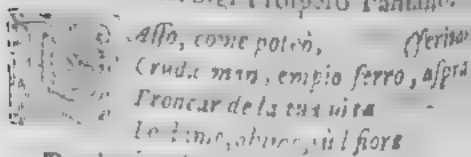 Prospero
Asso, come poteò, (ferita
Cruda man, empio ferro, aspra
Troncar de la tua uita
Lo stame, ohime, sù'l fiore